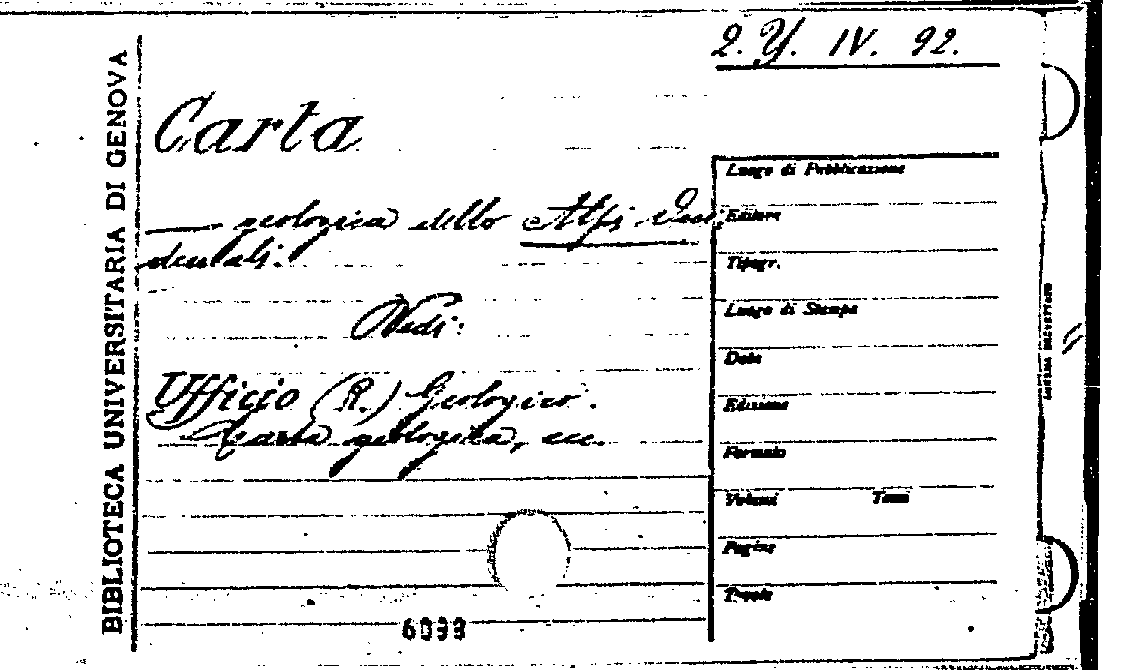 2. Y. IV. 92.
BIBLIOTECA UNIVERSITARIA DI GENOVA
Carta
—— geologica delle Alpi Occi-
dentali.
Vedi:
Ufficio (R.) Geologico.
Carta geologica, ecc.
Luogo di Pubblicazione
Editore
Tipogr.
Luogo di Stampa
Data
Edizione
Formato
Volumi Tomi
Pagine
Tavole
6093